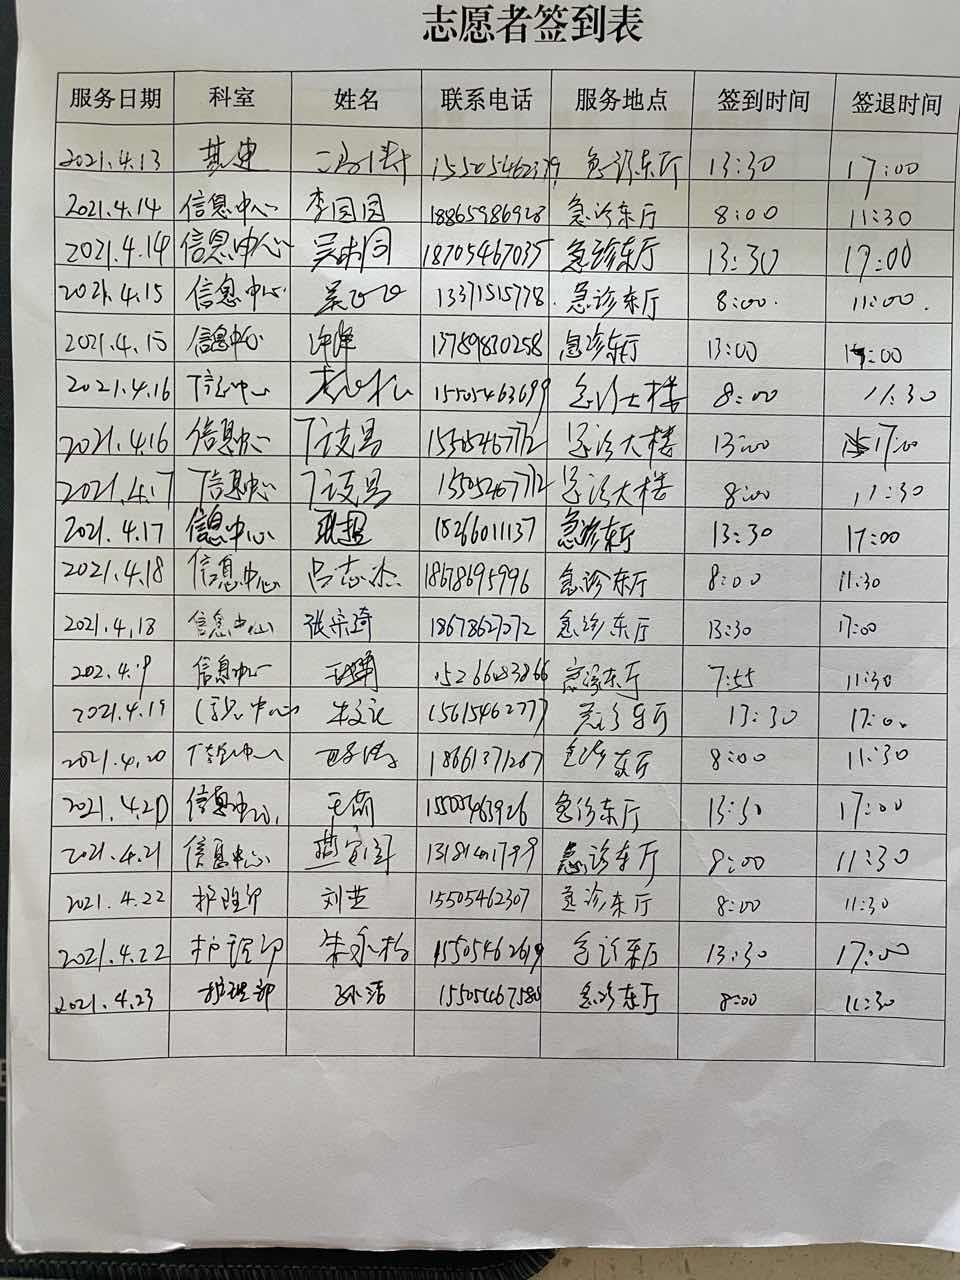 志愿者签到表
服务日期 科室 姓名 联系电话 服务地点 签到时间 签退时间
2021.4.13 基建 15505462379 急诊东厅 13:30 17:00
2021.4.14 信息中心 李园园 18865986928 急诊东厅 8:00 11:30
2021.4.14 信息中心 18705467035 急诊东厅 13:30 17:00
2021.4.15 信息中心 吴 13371515778 急诊东厅 8:00 11:00
2021.4.15 信息中心 13789830258 急诊东厅 13:00 17:00
2021.4.16 信息中心 15505463699 急诊大楼 8:00 11:30
2021.4.16 信息中心 15505467712 急诊大楼 13:00 17:00
2021.4.17 信息中心 15505467712 急诊大楼 8:00 11:30
2021.4.17 信息中心 15266011137 急诊东厅 13:30 17:00
2021.4.18 信息中心 吕志杰 18678695996 急诊东厅 8:00 11:30
2021.4.18 信息中心 张宗琦 18678627272 急诊东厅 13:30 17:00
202.4.19 信息中心 急诊东厅 7:55 11:30
2021.4.19 信息中心 15615462777 急诊东厅 13:30 17:00
2021.4.20 信息中心 18661371267 急诊东厅 8:00 11:30
2021.4.20 信息中心 王磊 15505463926 急诊东厅 13:30 17:00
2021.4.21 信息中心 急诊东厅 8:00 11:30
2021.4.22 护理部 刘芸 15505462307 急诊东厅 8:00 11:30
2021.4.22 护理部 朱永梅 15505462619 急诊东厅 13:30 17:00
2021.4.23 护理部 孙洁 15505467580 急诊东厅 8:00 11:30